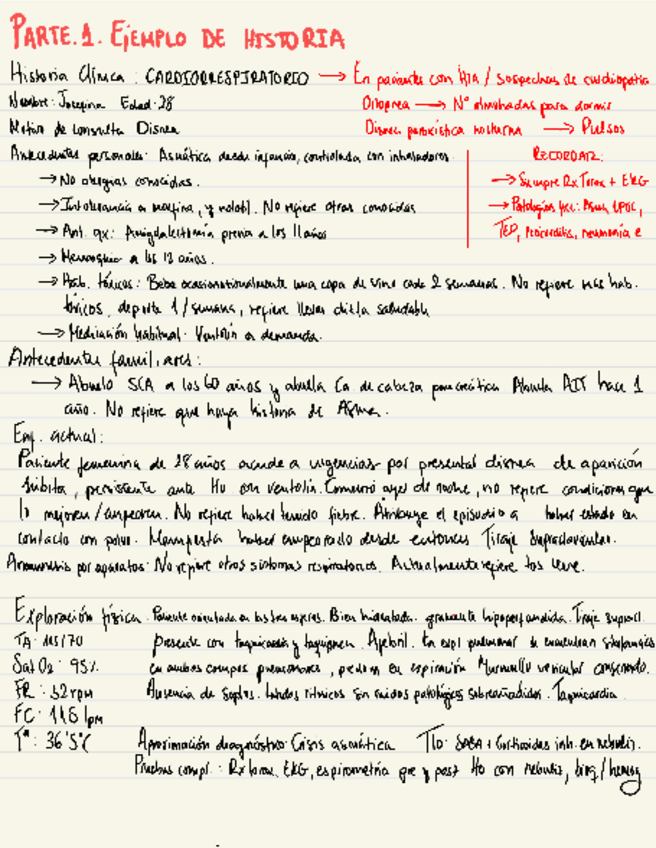 PARTE.1. EJEMPLO DE HISTORIA
Historia Clínica: CARDIORRESPIRATORIO → En pacientes con HTA / sospechas de cardiopatía
Nombre: Josefina Edad: 28
Ortopnea → Nº almohadas para dormir
Motivo de consulta Disnea
Disnea paroxística nocturna → Pulsos
Antecedentes personales: Asmática desde infancia, controlada con inhaladores.
RECORDAR:
→ No alergias conocidas.
→ Siempre Rx Torax + EKG
→ Intolerancia a y nolotil. No refiere otras conocidas
→ Patologías Asma, EPOC,
→ Ant. qx: Amigdalectomía previa a los 11 años
TEP, Pericarditis, neumonía e
→ Menarquia a los 12 años.
→ Hab. tóxicos: Bebe ocasionalmente una copa de vino cada 2 semanas. No refiere más hab.
tóxicos, deporte 1/semana, refiere llevar dieta saludable
→ Medicación habitual: Ventolin a demanda.
Antecedentes familiares:
→ Abuelo SCA a los 60 años y abuela Ca de cabeza pancreática Abuela AIT hace 1
año. No refiere que haya historia de Asma.
Enf. actual:
Paciente femenina de 28 años acude a urgencias por presentar disnea de aparición
súbita, persistente ante tto con ventolin. Comenzó ayer de noche, no refiere condiciones que
lo mejoren/empeoren. No refiere haber tenido fiebre. Atribuye el episodio a haber estado en
contacto con polvo. Manifiesta haber empeorado desde entonces Tiraje supraclavicular.
Anamnesis por aparatos: No refiere otros síntomas respiratorios. Actualmente refiere tos leve.
Exploración física. Paciente orientada en las tres esferas. Bien hidratada. hipoperfundida. Tiraje supracl.
TA: 115/70 presente con taquicardia y taquipnea. Apebril. En expl pulmonar se encuentran sibilancias
Sat O₂: 95% en ambos campos pulmonares, en espiración Murmullo vesicular conservado.
FR: 32 rpm Ausencia de soplos. Latidos rítmicos sin ruidos patológicos sobreañadidos. Taquicardia
FC: 116 lpm
Tª: 36'5ºC Aproximación diagnóstico: Crisis asmática Tto: SABA + Corticoides inh. en nebuliz.
Pruebas compl.: Rx torax, EKG, espirometría pre y post tto con nebuliz,